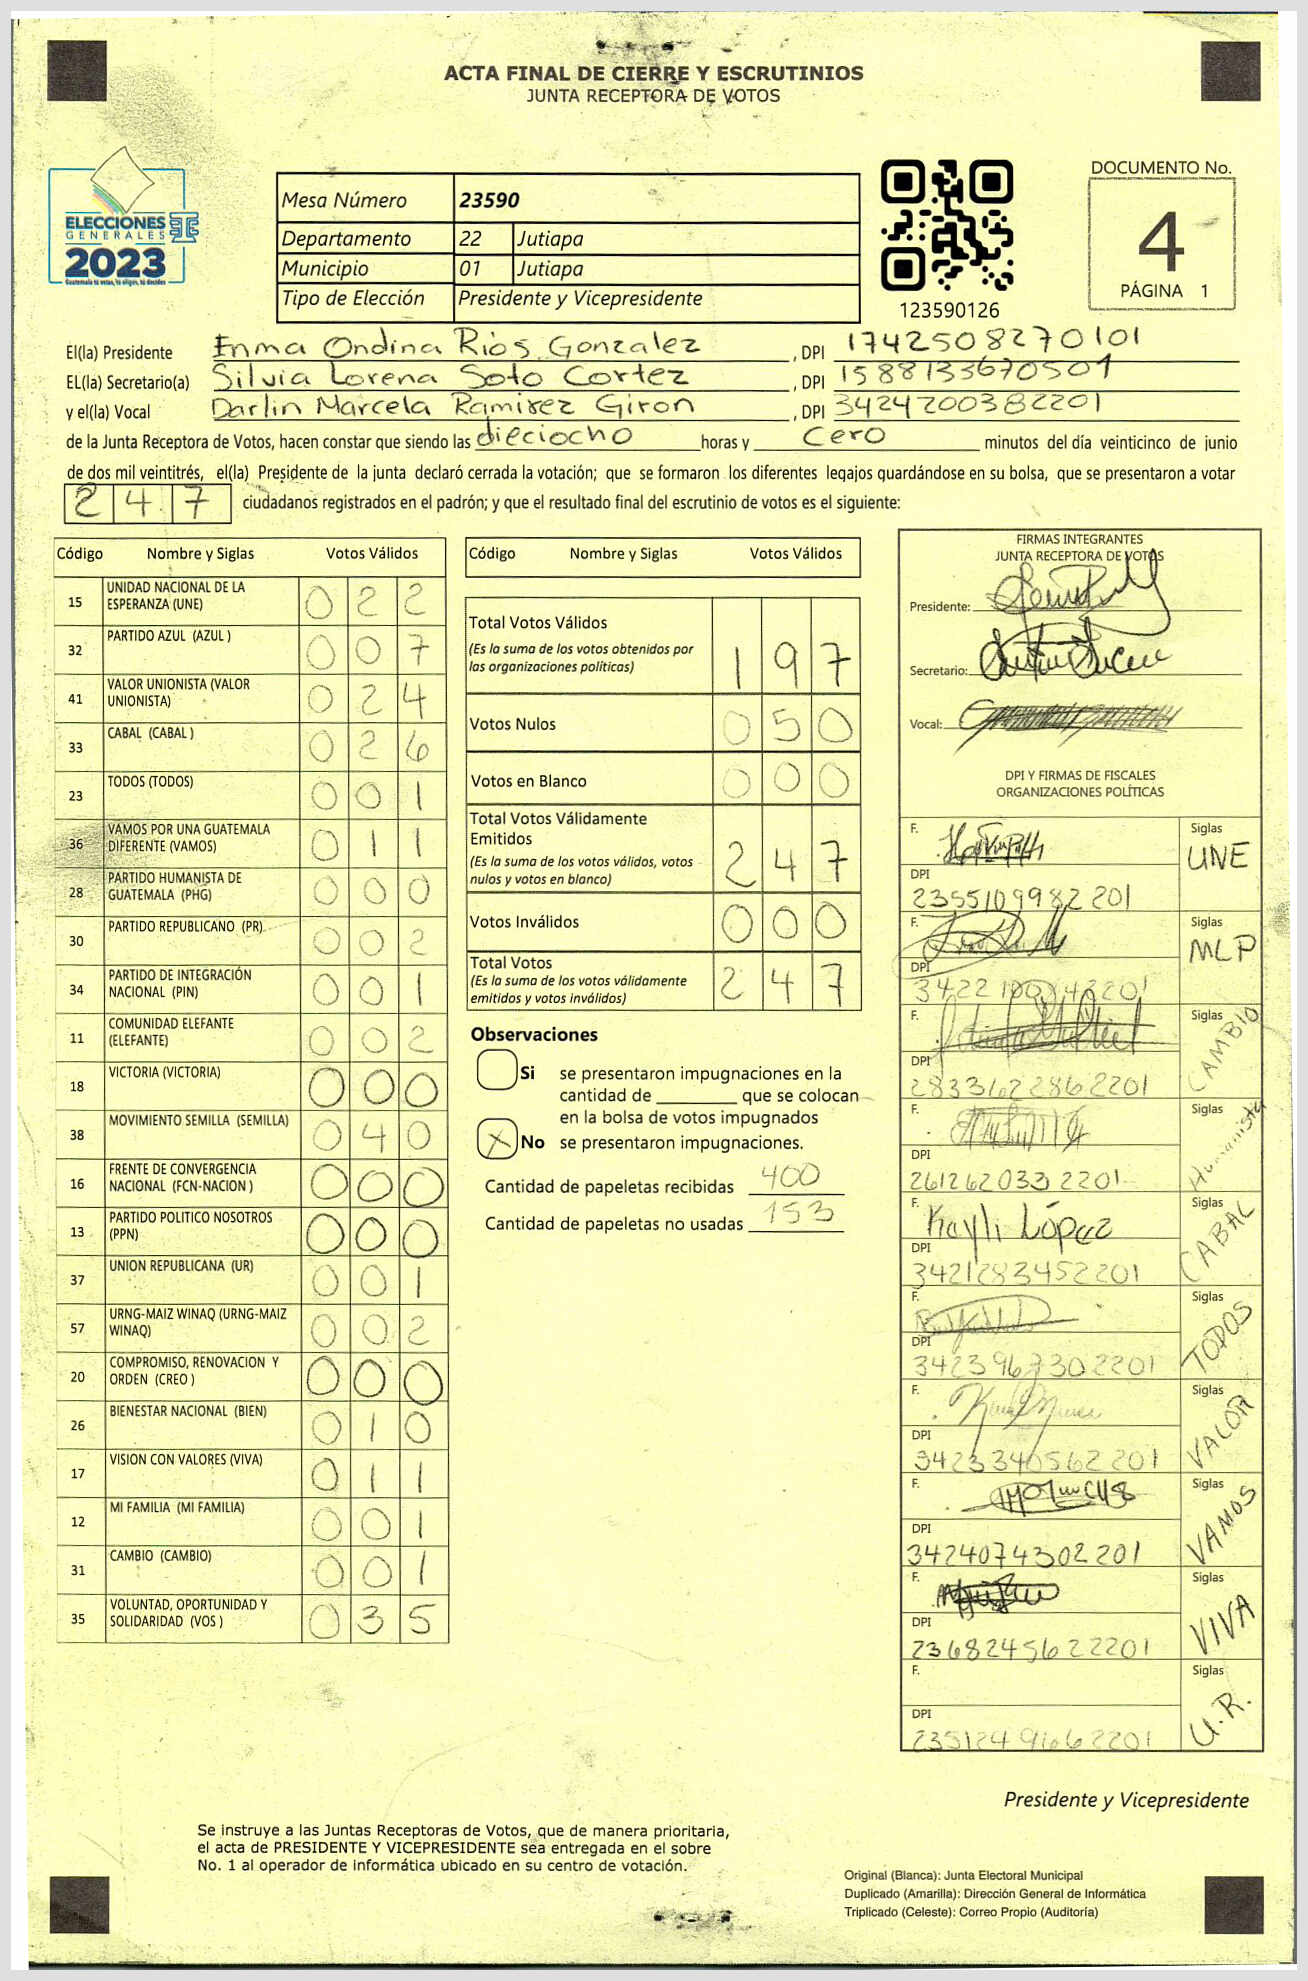 ACTA FINAL DE CIERRE Y ESCRUTINIOS
JUNTA RECEPTORA DE VOTOS
ELECCIONES
GENERALES
2023
Guatemala tú votas, tú eliges, tú decides
Mesa Número 23590
Departamento 22 Jutiapa
Municipio 01 Jutiapa
Tipo de Elección Presidente y Vicepresidente
123590126
DOCUMENTO No.
4
PÁGINA 1
El(la) Presidente Enma Ondina Rios Gonzalez, DPI 1742508270101
EL(la) Secretario(a) Silvia Lorena Soto Cortez, DPI 1588133670501
y el(la) Vocal Darlin Marcela Ramirez Giron, DPI 3424200382201
de la Junta Receptora de Votos, hacen constar que siendo las dieciocho horas y cero minutos del día veinticinco de junio
de dos mil veintitrés, el(la) Presidente de la junta declaró cerrada la votación; que se formaron los diferentes legajos guardándose en su bolsa, que se presentaron a votar
247 ciudadanos registrados en el padrón; y que el resultado final del escrutinio de votos es el siguiente:
Código Nombre y Siglas Votos Válidos
15 UNIDAD NACIONAL DE LA ESPERANZA (UNE) 022
32 PARTIDO AZUL (AZUL ) 007
41 VALOR UNIONISTA (VALOR UNIONISTA) 024
33 CABAL (CABAL ) 026
23 TODOS (TODOS) 001
36 VAMOS POR UNA GUATEMALA DIFERENTE (VAMOS) 011
28 PARTIDO HUMANISTA DE GUATEMALA (PHG) 000
30 PARTIDO REPUBLICANO (PR) 002
34 PARTIDO DE INTEGRACIÓN NACIONAL (PIN) 001
11 COMUNIDAD ELEFANTE (ELEFANTE) 002
18 VICTORIA (VICTORIA) 000
38 MOVIMIENTO SEMILLA (SEMILLA) 040
16 FRENTE DE CONVERGENCIA NACIONAL (FCN-NACION ) 000
13 PARTIDO POLITICO NOSOTROS (PPN) 000
37 UNION REPUBLICANA (UR) 001
57 URNG-MAIZ WINAQ (URNG-MAIZ WINAQ) 002
20 COMPROMISO, RENOVACION Y ORDEN (CREO ) 000
26 BIENESTAR NACIONAL (BIEN) 010
17 VISION CON VALORES (VIVA) 011
12 MI FAMILIA (MI FAMILIA) 001
31 CAMBIO (CAMBIO) 001
35 VOLUNTAD, OPORTUNIDAD Y SOLIDARIDAD (VOS ) 035
Código Nombre y Siglas Votos Válidos
Total Votos Válidos 197
(Es la suma de los votos obtenidos por
las organizaciones políticas)
Votos Nulos 050
Votos en Blanco 000
Total Votos Válidamente
Emitidos 247
(Es la suma de los votos válidos, votos
nulos y votos en blanco)
Votos Inválidos 000
Total Votos 247
(Es la suma de los votos válidamente
emitidos y votos inválidos)
Observaciones
Si se presentaron impugnaciones en la
cantidad de ________ que se colocan
en la bolsa de votos impugnados
X No se presentaron impugnaciones.
Cantidad de papeletas recibidas 400
Cantidad de papeletas no usadas 153
FIRMAS INTEGRANTES
JUNTA RECEPTORA DE VOTOS
Presidente:
Secretario:
Vocal:
DPI Y FIRMAS DE FISCALES
ORGANIZACIONES POLÍTICAS
F. Siglas UNE
DPI 2355109982201
F. Siglas MLP
DPI
F. Siglas CAMBIO
DPI 2833622862201
F. Siglas Humanista
DPI 2612620332201
F. Kayli López Siglas CABAL
DPI 3421283452201
F. Siglas TODOS
DPI 3423967302201
F. Siglas VALOR
DPI 3423340562201
F. Siglas VAMOS
DPI 3424074302201
F. Siglas VIVA
DPI 2368245622201
F. Siglas U.R.
DPI 2351249162201
Presidente y Vicepresidente
Se instruye a las Juntas Receptoras de Votos, que de manera prioritaria,
el acta de PRESIDENTE Y VICEPRESIDENTE sea entregada en el sobre
No. 1 al operador de informática ubicado en su centro de votación.
Original (Blanca): Junta Electoral Municipal
Duplicado (Amarilla): Dirección General de Informática
Triplicado (Celeste): Correo Propio (Auditoría)